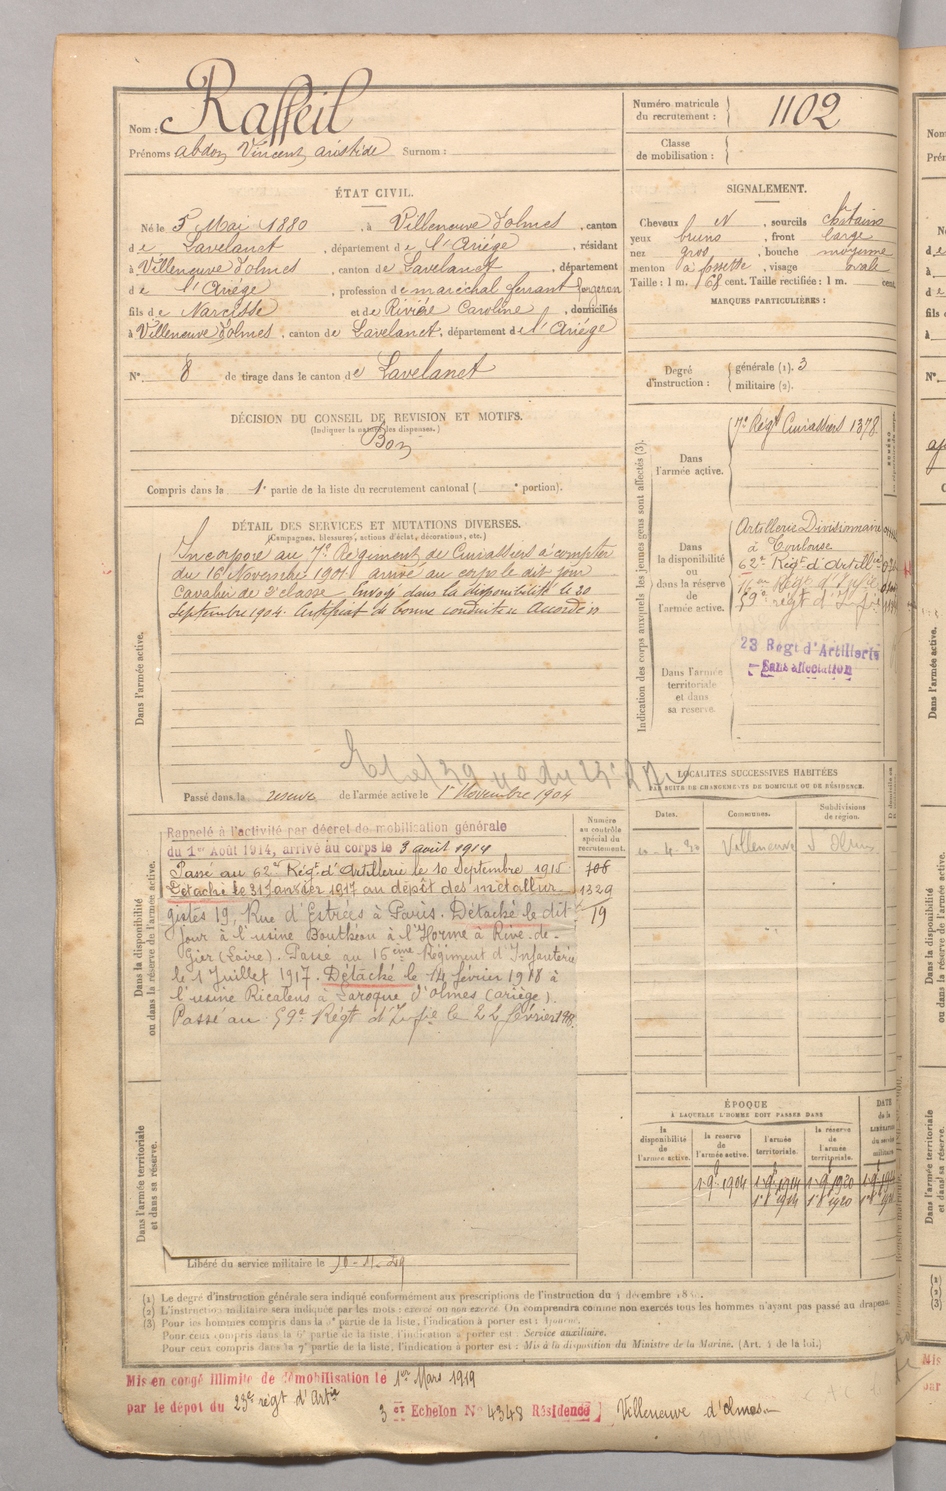 Nom : Rasseil
Prénoms Abdon Vincent Aristide Surnom :
Numéro matricule du recrutement : 1102
Classe de mobilisation :
ÉTAT CIVIL.
Né le 5 Mai 1880, à Villeneuve d'olmes, canton
de Lavelanet, département de l'Ariége, résidant
à Villeneuve d'olmes, canton de Lavelanet, département
de l'Ariége, profession de maréchal ferrant forgeron
fils de Narcisse et de Rivière Caroline, domiciliés
à Villeneuve d'olmes, canton de Lavelanet, département de l'Ariége
N° 8 de tirage dans le canton de Lavelanet
SIGNALEMENT.
Cheveux N, sourcils chatains
yeux bruns, front large
nez gros, bouche moyenne
menton à fossette, visage ovale
Taille : 1 m. 68 cent. Taille rectifiée : 1 m. cent.
MARQUES PARTICULIÈRES :
Degré d'instruction : générale (1). 3
militaire (2).
DÉCISION DU CONSEIL DE REVISION ET MOTIFS.
(Indiquer la nature des dispenses.)
Bon
Compris dans la 1e partie de la liste du recrutement cantonal ( e portion).
DÉTAIL DES SERVICES ET MUTATIONS DIVERSES.
(Campagnes, blessures, actions d'éclat, décorations, etc.)
Dans l'armée active.
Incorporé au 7e Régiment de Cuirassiers à compter
du 16 Novembre 1901 arrivé au corps le dit jour
Cavalier de 2e classe. Envoyé dans la disponibilité le 20
Septembre 1904. Certificat de bonne conduite Accordé
Passé dans la reserve de l'armée active le 1er Novembre 1904
Indication des corps auxquels les jeunes gens sont affectés (3).
Dans l'armée active.
7e Régt Cuirassiers 1378
Dans la disponibilité ou dans la réserve de l'armée active.
Artillerie Divisionnaire
à Toulouse
62e Régt d'Artillie
16e Régt d'Infie
59e régt d'Infie
Dans l'armée territoriale et dans sa reserve.
23 Regt d'Artillerie
Sans affectation
LOCALITÉS SUCCESSIVES HABITÉES
PAR SUITE DE CHANGEMENTS DE DOMICILE OU DE RÉSIDENCE.
Dates.
Communes.
Subdivisions de région.
Villeneuve d'Olmes
Dans la disponibilité ou dans la réserve de l'armée active.
Numéro au contrôle spécial du recrutement.
108
1329
19
Rappelé à l'activité par décret de mobilisation générale
du 1er Août 1914, arrivé au corps le 3 août 1914
Passé au 62e Régt d'Artillerie le 10 Septembre 1915
Détaché le 31 Janvier 1917 au dépôt des métallur-
gistes 19, Rue d'Estrées à Paris. Détaché le dit
jour à l'usine Bouthéon à l'Horme à Rive-de-
Gier (Loire). Passé au 16ème Régiment d'Infanterie
le 1 Juillet 1917. Détaché le 14 février 1918 à
l'usine Ricalens à Laroque d'Olmes (Ariège).
Passé au 59e Régt d'Infie le 22 février 1918.
Dans l'armée territoriale et dans sa réserve.
Libéré du service militaire le
ÉPOQUE
À LAQUELLE L'HOMME DOIT PASSER DANS
la disponibilité de l'armée active.
la reserve de l'armée active.
l'armée territoriale.
la réserve de l'armée territoriale.
DATE de la LIBÉRATION du service militaire
(1) Le degré d'instruction générale sera indiqué conformément aux prescriptions de l'instruction du 4 décembre
(2) L'instruction militaire sera indiquée par les mots : exercé ou non exercé. On comprendra comme non exercés tous les hommes n'ayant pas passé au drapeau
(3) Pour les hommes compris dans la partie de la liste, l'indication à porter est : Ajourné.
Pour ceux compris dans la 6e partie de la liste, l'indication à porter est : Service auxiliaire.
Pour ceux compris dans la 7e partie de la liste, l'indication à porter est : Mis à la disposition du Ministre de la Marine. (Art. 4 de la loi.)
Mis en congé illimité de démobilisation le 1er Mars 1919
par le dépot du 23e régt d'Artie
3 er Echelon No 4348 Résidence Villeneuve d'olmes